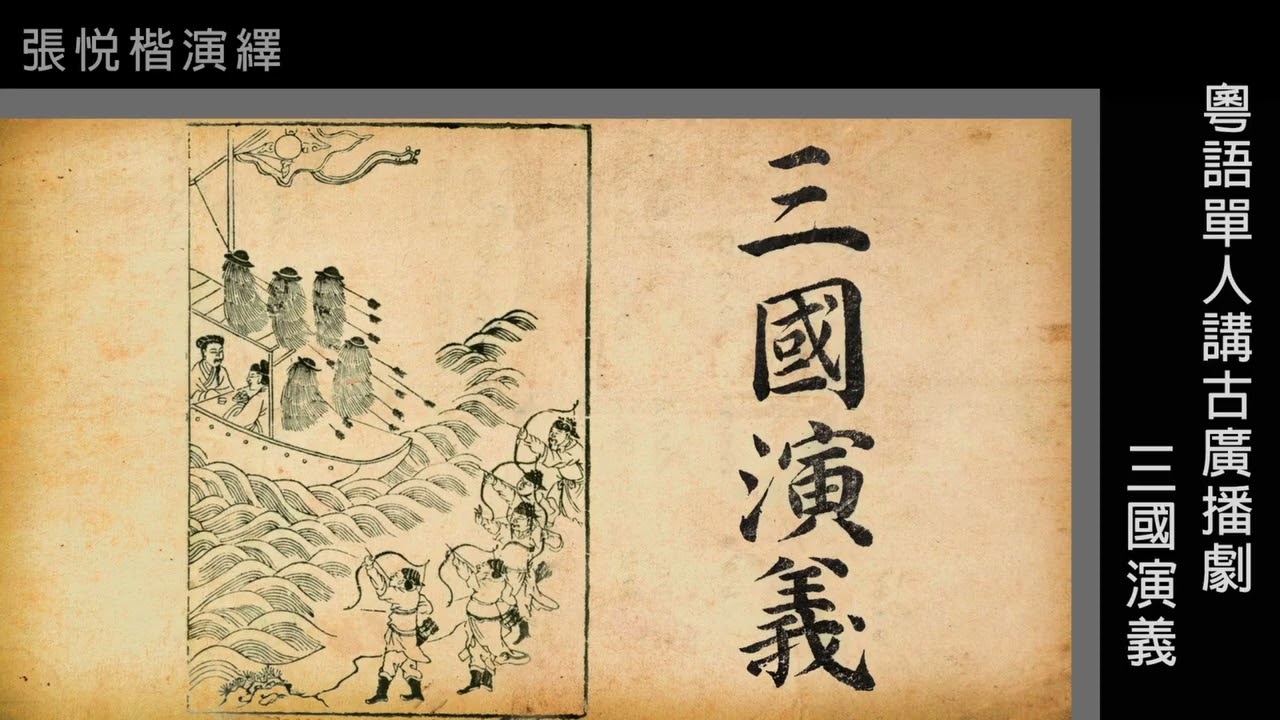 張悦楷演繹
三國演義
粵語單人講古廣播劇
三國演義